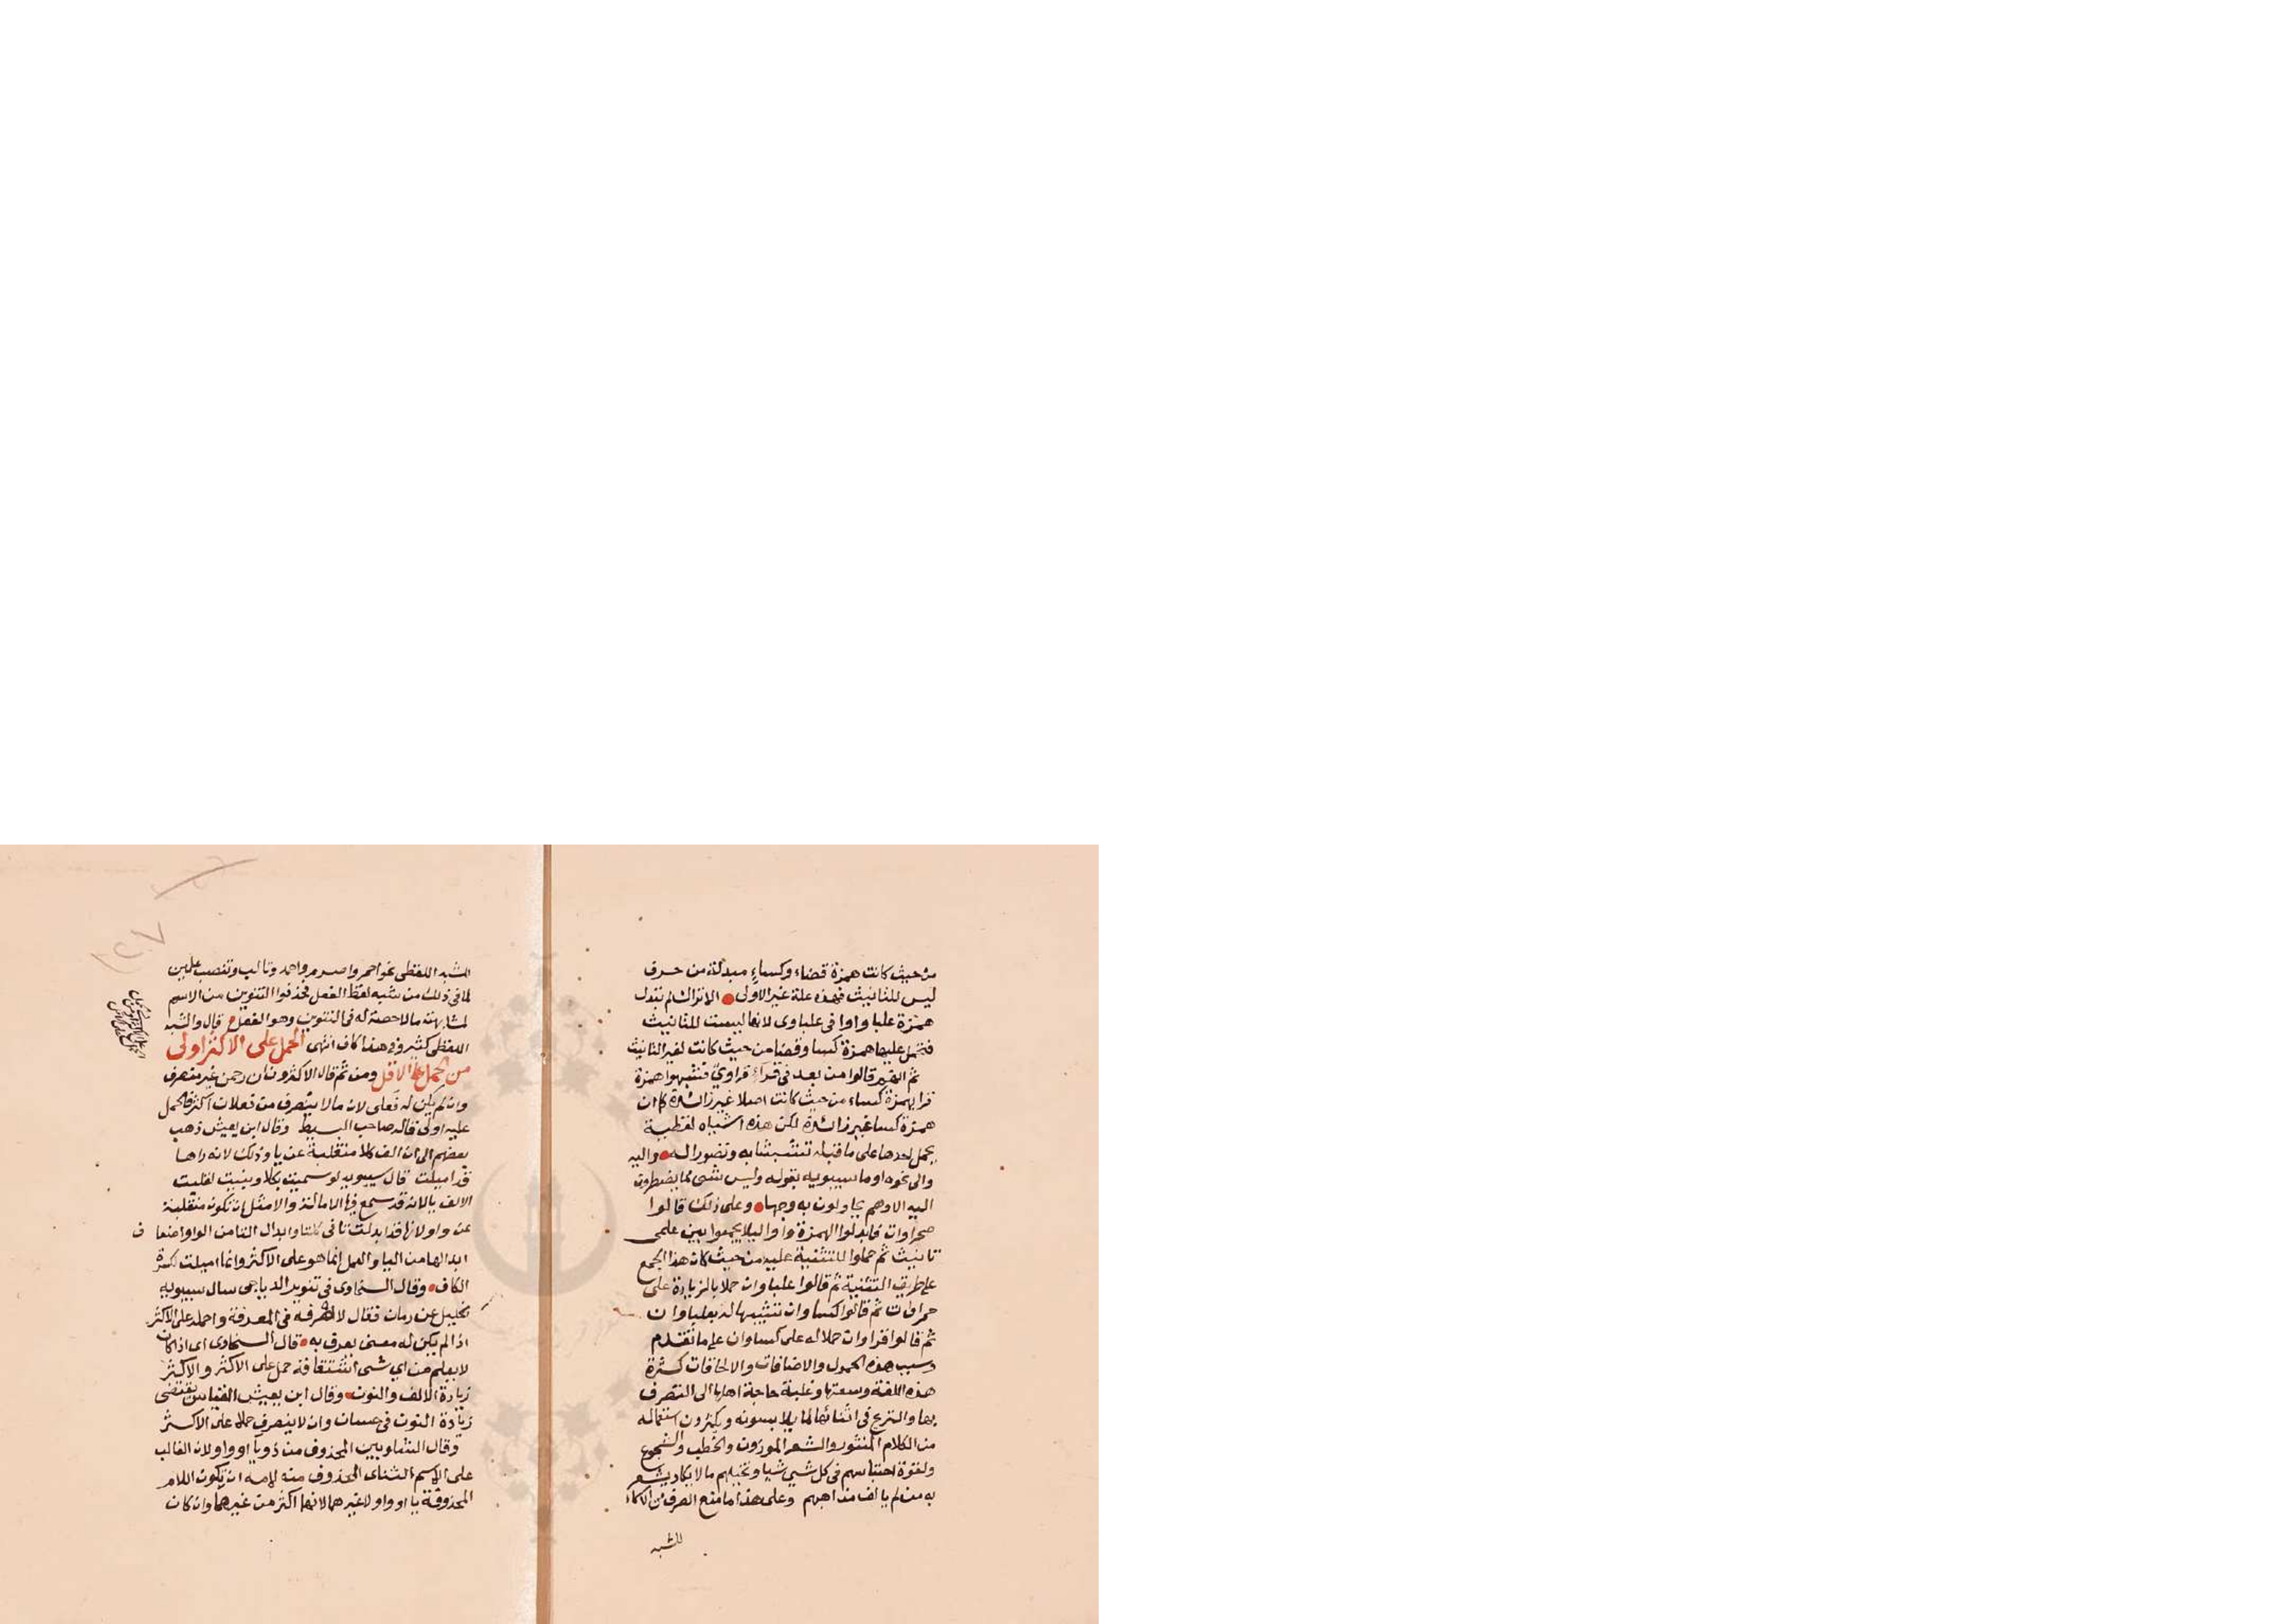 من حيث كانت همزة قضاء وكساء مبدلة من حرف
ليس للتانيث فهذه علة غير الاولى الا تراك لم تبدل
همزة علبا واوا في علباوى لانها ليست للتانيث
فتحمل عليها همزة كسا وقضا من حيث كانت لغير التانيث
ثم انهم قالوا من بعد في قراء قراوي فشبهوا همزة
قرا بهمزة كساء من حيث كانت اصلا غير زائدة كما ان
همزة كسا غير زائدة لكن هذه اشباه لفظية
يحمل احدها على ما قبله تشبثا به وتصورا له واليه
والى نحوه اوما سيبويه بقوله وليس شى مما يضطرون
اليه الا وهم يحاولون به وجها وعلى ذلك قالوا
صحراوات فابدلوا الهمزة واوا ليلا يجمعوا بين علمى
تانيث ثم حملوا التثنية عليه من حيث كان هذا الجمع
على طريق التثنية ثم قالوا علباوان حملا بالزيادة على
حمراوات ثم قالوا كساوان تشبيها له بعلباوان
ثم قالوا قراوان حملا له على كساوان على ما تقدم
وسبب هذه الحمول والاضافات والالحاقات كثرة
هذه اللغة وسعتها وغلبة حاجة اهلها الى التصرف
بها والتركح في اثنائها لما يلابسونه ويكثرون استعماله
من الكلام المنثور والشعر الموزون والخطب والسجوع
ولقوة احساسهم في كل شي شيا وتخيلهم ما لا يكاد يشعر
به من لم يالف مذاهبهم وعلى هذا ما منع الصرف من الاسماء
للشبه
للشبه اللفظى نحو احمر واصرم واحمد وتالب وتنضب علمين
لما في ذلك من شبه لفظ الفعل فحذفوا التنوين من الاسم
لمشابهته ما لا حصة له في التنوين وهو الفعل قال والشبه
اللفظى كثير وفي هذا كاف انتهى الحمل على الاكثر اولى
من الحمل على الاقل ومن ثم قال الاكثرون ان رحمن غير منصرف
وان لم يكن له فعلى لان ما لا ينصرف من فعلان اكثر فالحمل
عليه اولى قاله صاحب البسيط وقال ابن يعيش ذهب
بعضهم الى ان الف كلا منقلبة عن يا وذلك لانه راها
قد اميلت قال سيبويه لو سميت بكلا وثنيت لقلبت
الالف يا لانه قد سمع فيها الامالة والامثل ان تكون منقلبة
عن واو لانها قد ابدلت تا في كلتا وابدال التا من الواو اضعا ف
ابدالها من اليا والعمل انما هو على الاكثر وانما اميلت لكسرة
الكاف وقال السخاوى في تنوير الدياجى سال سيبويه
الخليل عن رمان فقال لا اصرفه في المعرفة واحمله على الاكثر
اذا لم يكن له معنى يعرف به قال السخاوى اى اذا كان
لا يعلم من اي شى اشتقاقه حمل على الاكثر والاكثر
زيادة الالف والنون وقال ابن يعيش القياس يقتضى
زيادة النون في حسان وان لا ينصرف حملا على الاكثر
وقال الشلوبين المحذوف من ذو يا او واو لان الغالب
على الاسم الثناى المحذوف منه لامه ان يكون اللام
المحذوفة يا او واو لا غيرهما لانهما اكثر من غيرهما وان كان